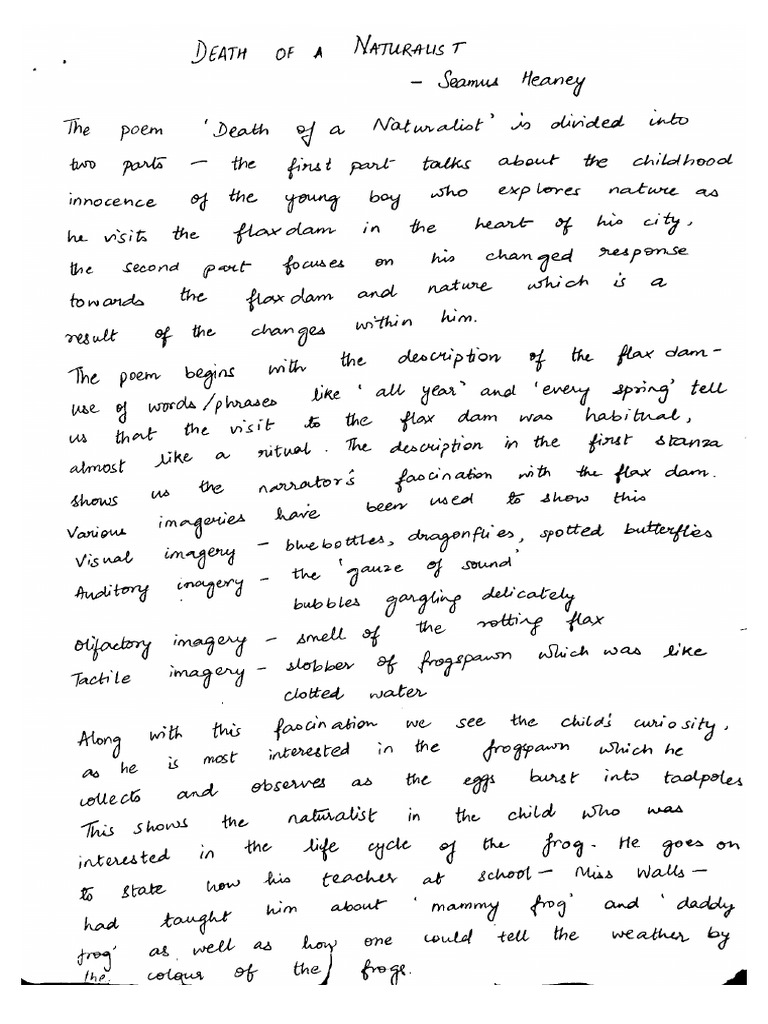 DEATH OF A NATURALIST
- Seamus Heaney
The poem 'Death of a Naturalist' is divided into
two parts - the first part talks about the childhood
innocence of the young boy who explores nature as
he visits the flax dam in the heart of his city,
the second part focuses on his changed response
towards the flax dam and nature which is a
result of the changes within him.
The poem begins with the description of the flax dam -
use of words/phrases like 'all year' and 'every spring' tell
us that the visit to the flax dam was habitual,
almost like a ritual. The description in the first stanza
shows us the narrator's fascination with the flax dam.
Various imageries have been used to show this
Visual imagery - bluebottles, dragonflies, spotted butterflies
Auditory imagery - the 'gauze of sound'
bubbles gargling delicately
Olifactory imagery - smell of the rotting flax
Tactile imagery - slobber of frogspawn which was like
clotted water
Along with this fascination we see the child's curiosity,
as he is most interested in the frogspawn which he
collects and observes as the eggs burst into tadpoles
This shows the naturalist in the child who was
interested in the life cycle of the frog. He goes on
to state how his teacher at school - Miss Walls -
had taught him about 'mammy frog' and 'daddy
frog' as well as how one could tell the weather by
the colour of the frogs.